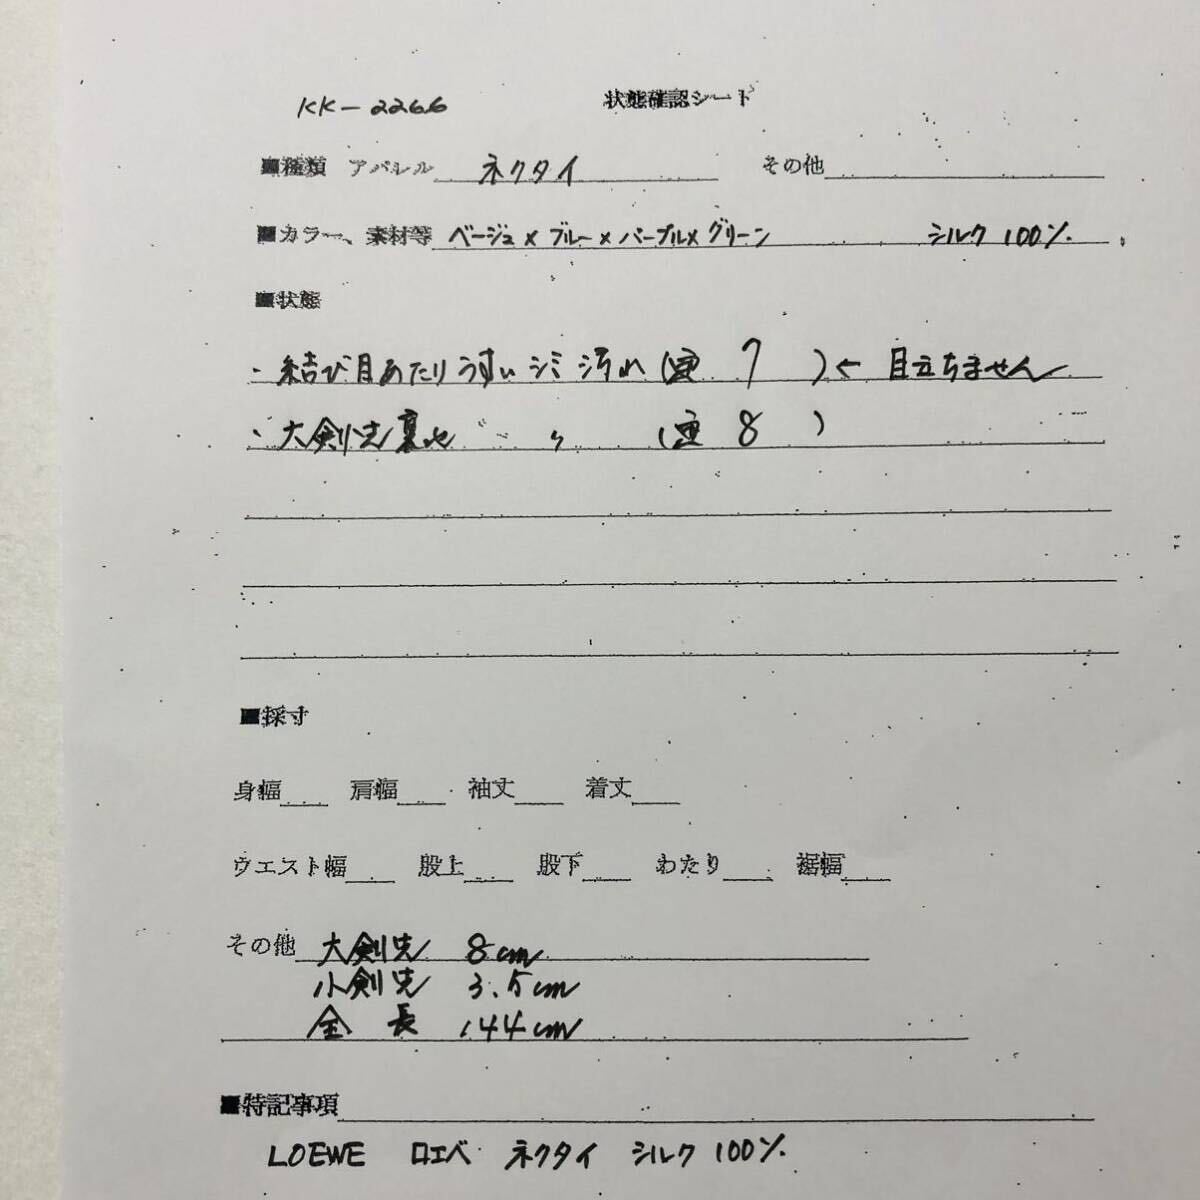 KK-2266 状態確認シート
■種類 アパレル ネクタイ その他
■カラー、素材等 ベージュ×ブルー×パープル×グリーン シルク100%
■状態
・結び目あたりうすいシミ汚れ ( 7 ) ← 目立ちません
・大剣先裏地 〃 ( 8 )
■採寸
身幅 肩幅 袖丈 着丈
ウエスト幅 股上 股下 わたり 裾幅
その他 大剣先 8cm
小剣先 3.5cm
全長 144cm
■特記事項
LOEWE ロエベ ネクタイ シルク100%